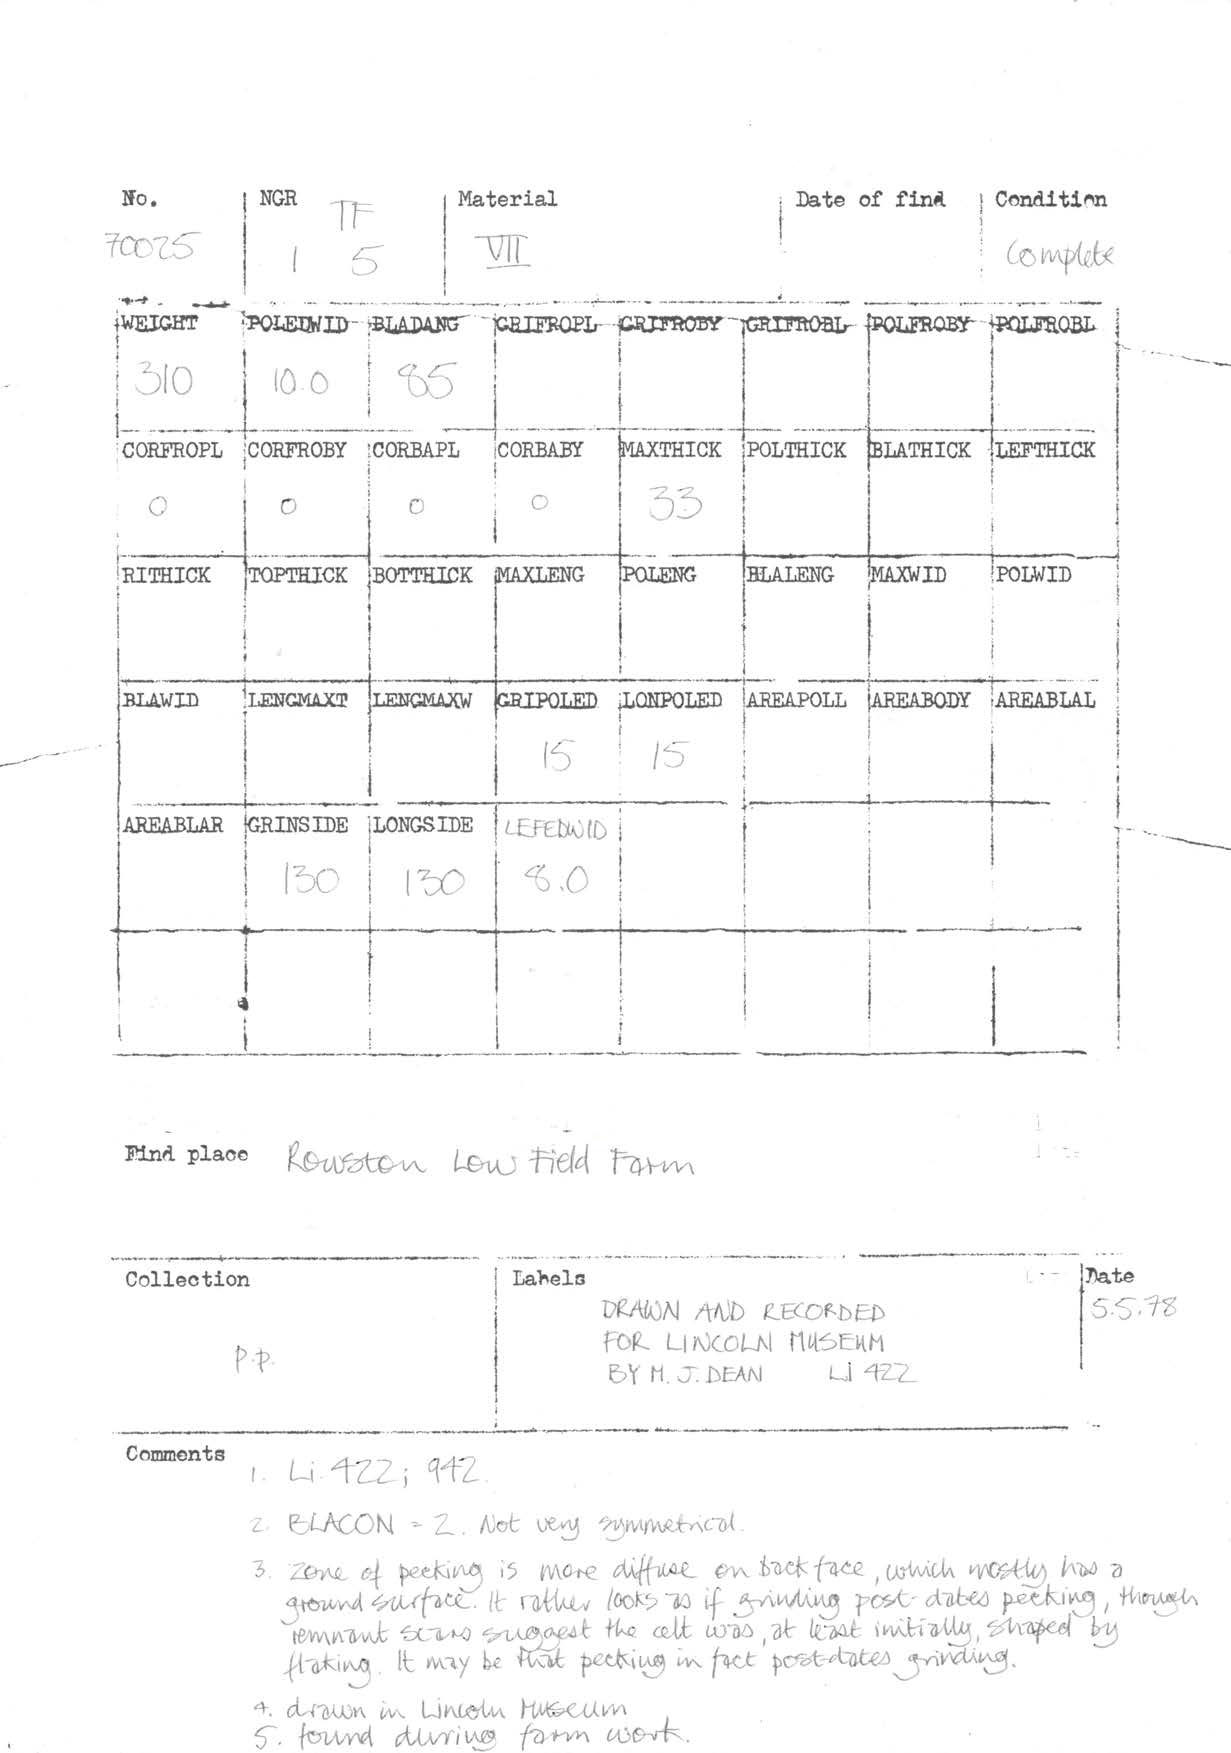 No. NGR TF Material Date of find Condition
70025 1 5 VII Complete
WEIGHT POLEDWID BLADANG GRIFROPL GRIFROBY GRIFROBL POLFROBY POLFROBL
310 10.0 85
CORFROPL CORFROBY CORBAPL CORBABY MAXTHICK POLTHICK BLATHICK LEFTHICK
0 0 0 0 33
RITHICK TOPTHICK BOTTHICK MAXLENG POLENG BLALENG MAXWID POLWID
BLAWID LENGMAXT LENGMAXW GRIPOLED LONPOLED AREAPOLL AREABODY AREABLAL
15 15
AREABLAR GRINSIDE LONGSIDE LEFEDWID
130 130 8.0
Find place Rowston Low Field Farm
Collection Labels Date
DRAWN AND RECORDED 5.5.78
FOR LINCOLN MUSEUM
P.P. BY M. J. DEAN Li 422
Comments
1. Li. 422; 942.
2. BLACON = 2. Not very symmetrical.
3. Zone of pecking is more diffuse on back face, which mostly has a
ground surface. It rather looks as if grinding post-dates pecking, though
remnant scars suggest the celt was, at least initially, shaped by
flaking. It may be that pecking in fact post-dates grinding.
4. drawn in Lincoln Museum
5. found during farm work.